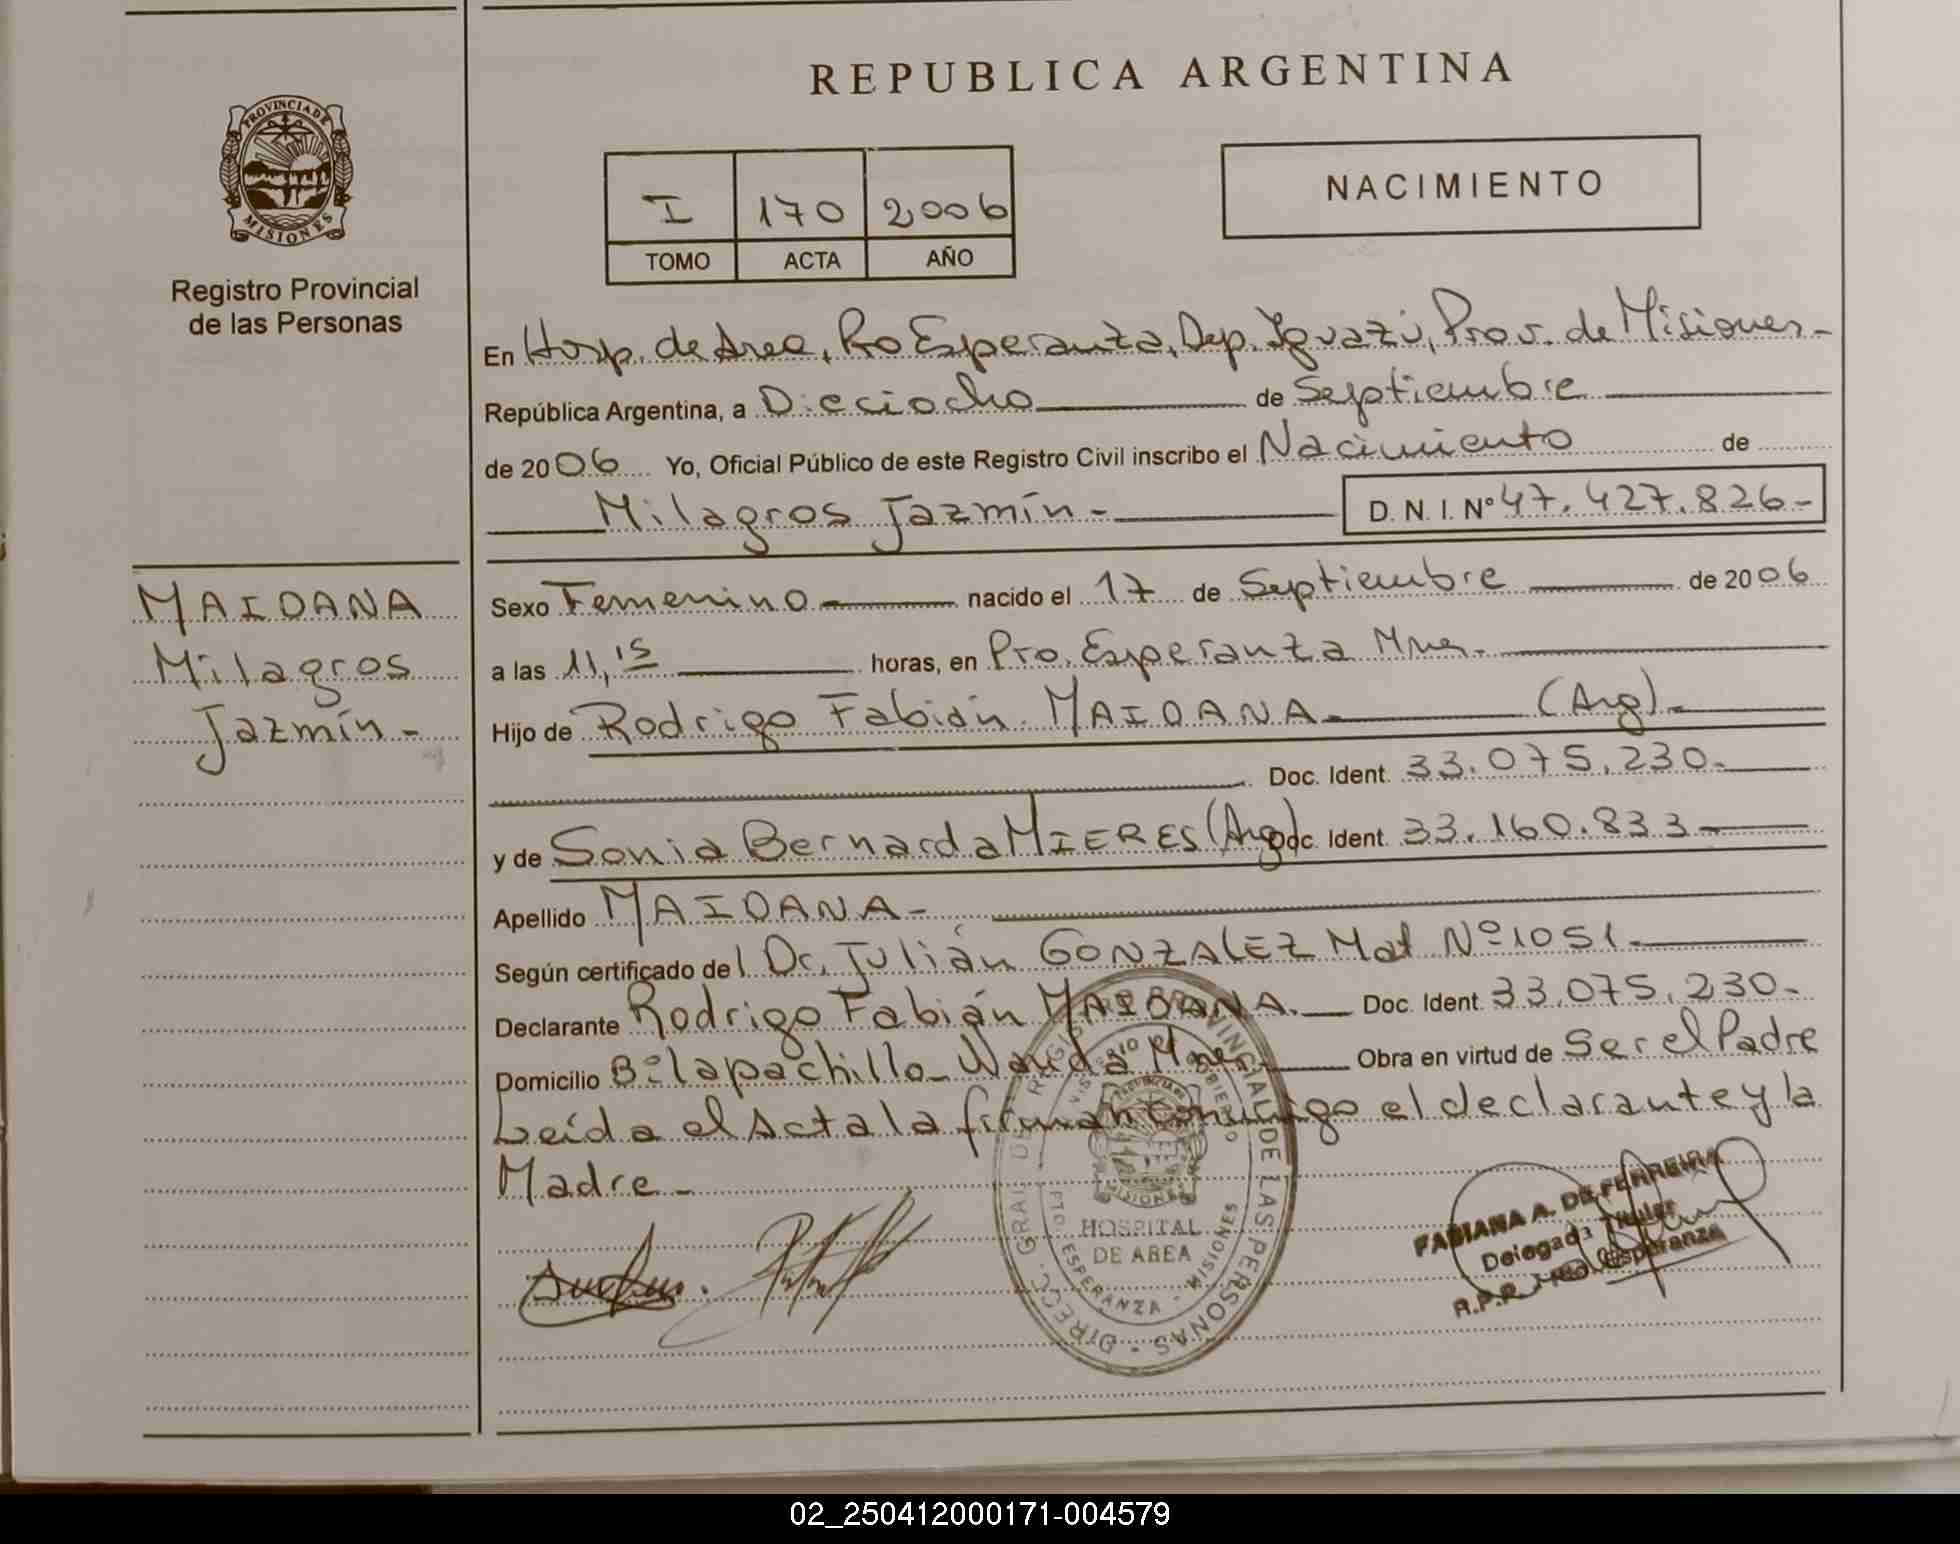 REPUBLICA ARGENTINA
PROVINCIA DE
MISIONES
Registro Provincial
de las Personas
I 170 2006
TOMO ACTA AÑO
NACIMIENTO
En Hosp. de Area, Pto Esperanza, Dep. Iguazú, Prov. de Misiones-
República Argentina, a Dieciocho de Septiembre
de 2006 Yo, Oficial Público de este Registro Civil inscribo el Nacimiento de
Milagros Jazmín-
D. N. I. Nº 47.427.826-
MAIDANA
Milagros
Jazmín-
Sexo Femenino- nacido el 17 de Septiembre de 2006
a las 11,15 horas, en Pto. Esperanza Mnes.
Hijo de Rodrigo Fabián MAIDANA- (Arg)-
Doc. Ident. 33.075.230-
y de Sonia Bernarda MIERES (Arg) Doc. Ident. 33.160.833-
Apellido MAIDANA-
Según certificado del Dr. Julián GONZALEZ Mat Nº 1051-
Declarante Rodrigo Fabián MAIDANA. Doc. Ident. 33.075.230-
Domicilio Bº lapachillo- Wanda Mnes Obra en virtud de Ser el Padre
Leída el Acta la firman conmigo el declarante y la
Madre-
DIRECC. GRAL DE REGISTRO PROVINCIAL DE LAS PERSONAS
HOSPITAL
DE AREA
PTO. ESPERANZA - MISIONES
FABIANA A. DE FERREIRA
Delegada Titular
R.P.P. Pto. Esperanza
02_250412000171-004579